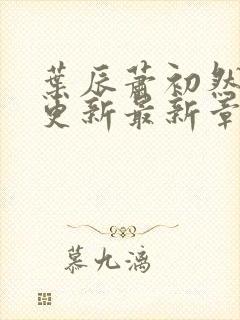 葉辰蕭初然
更新最新章
慕九漓